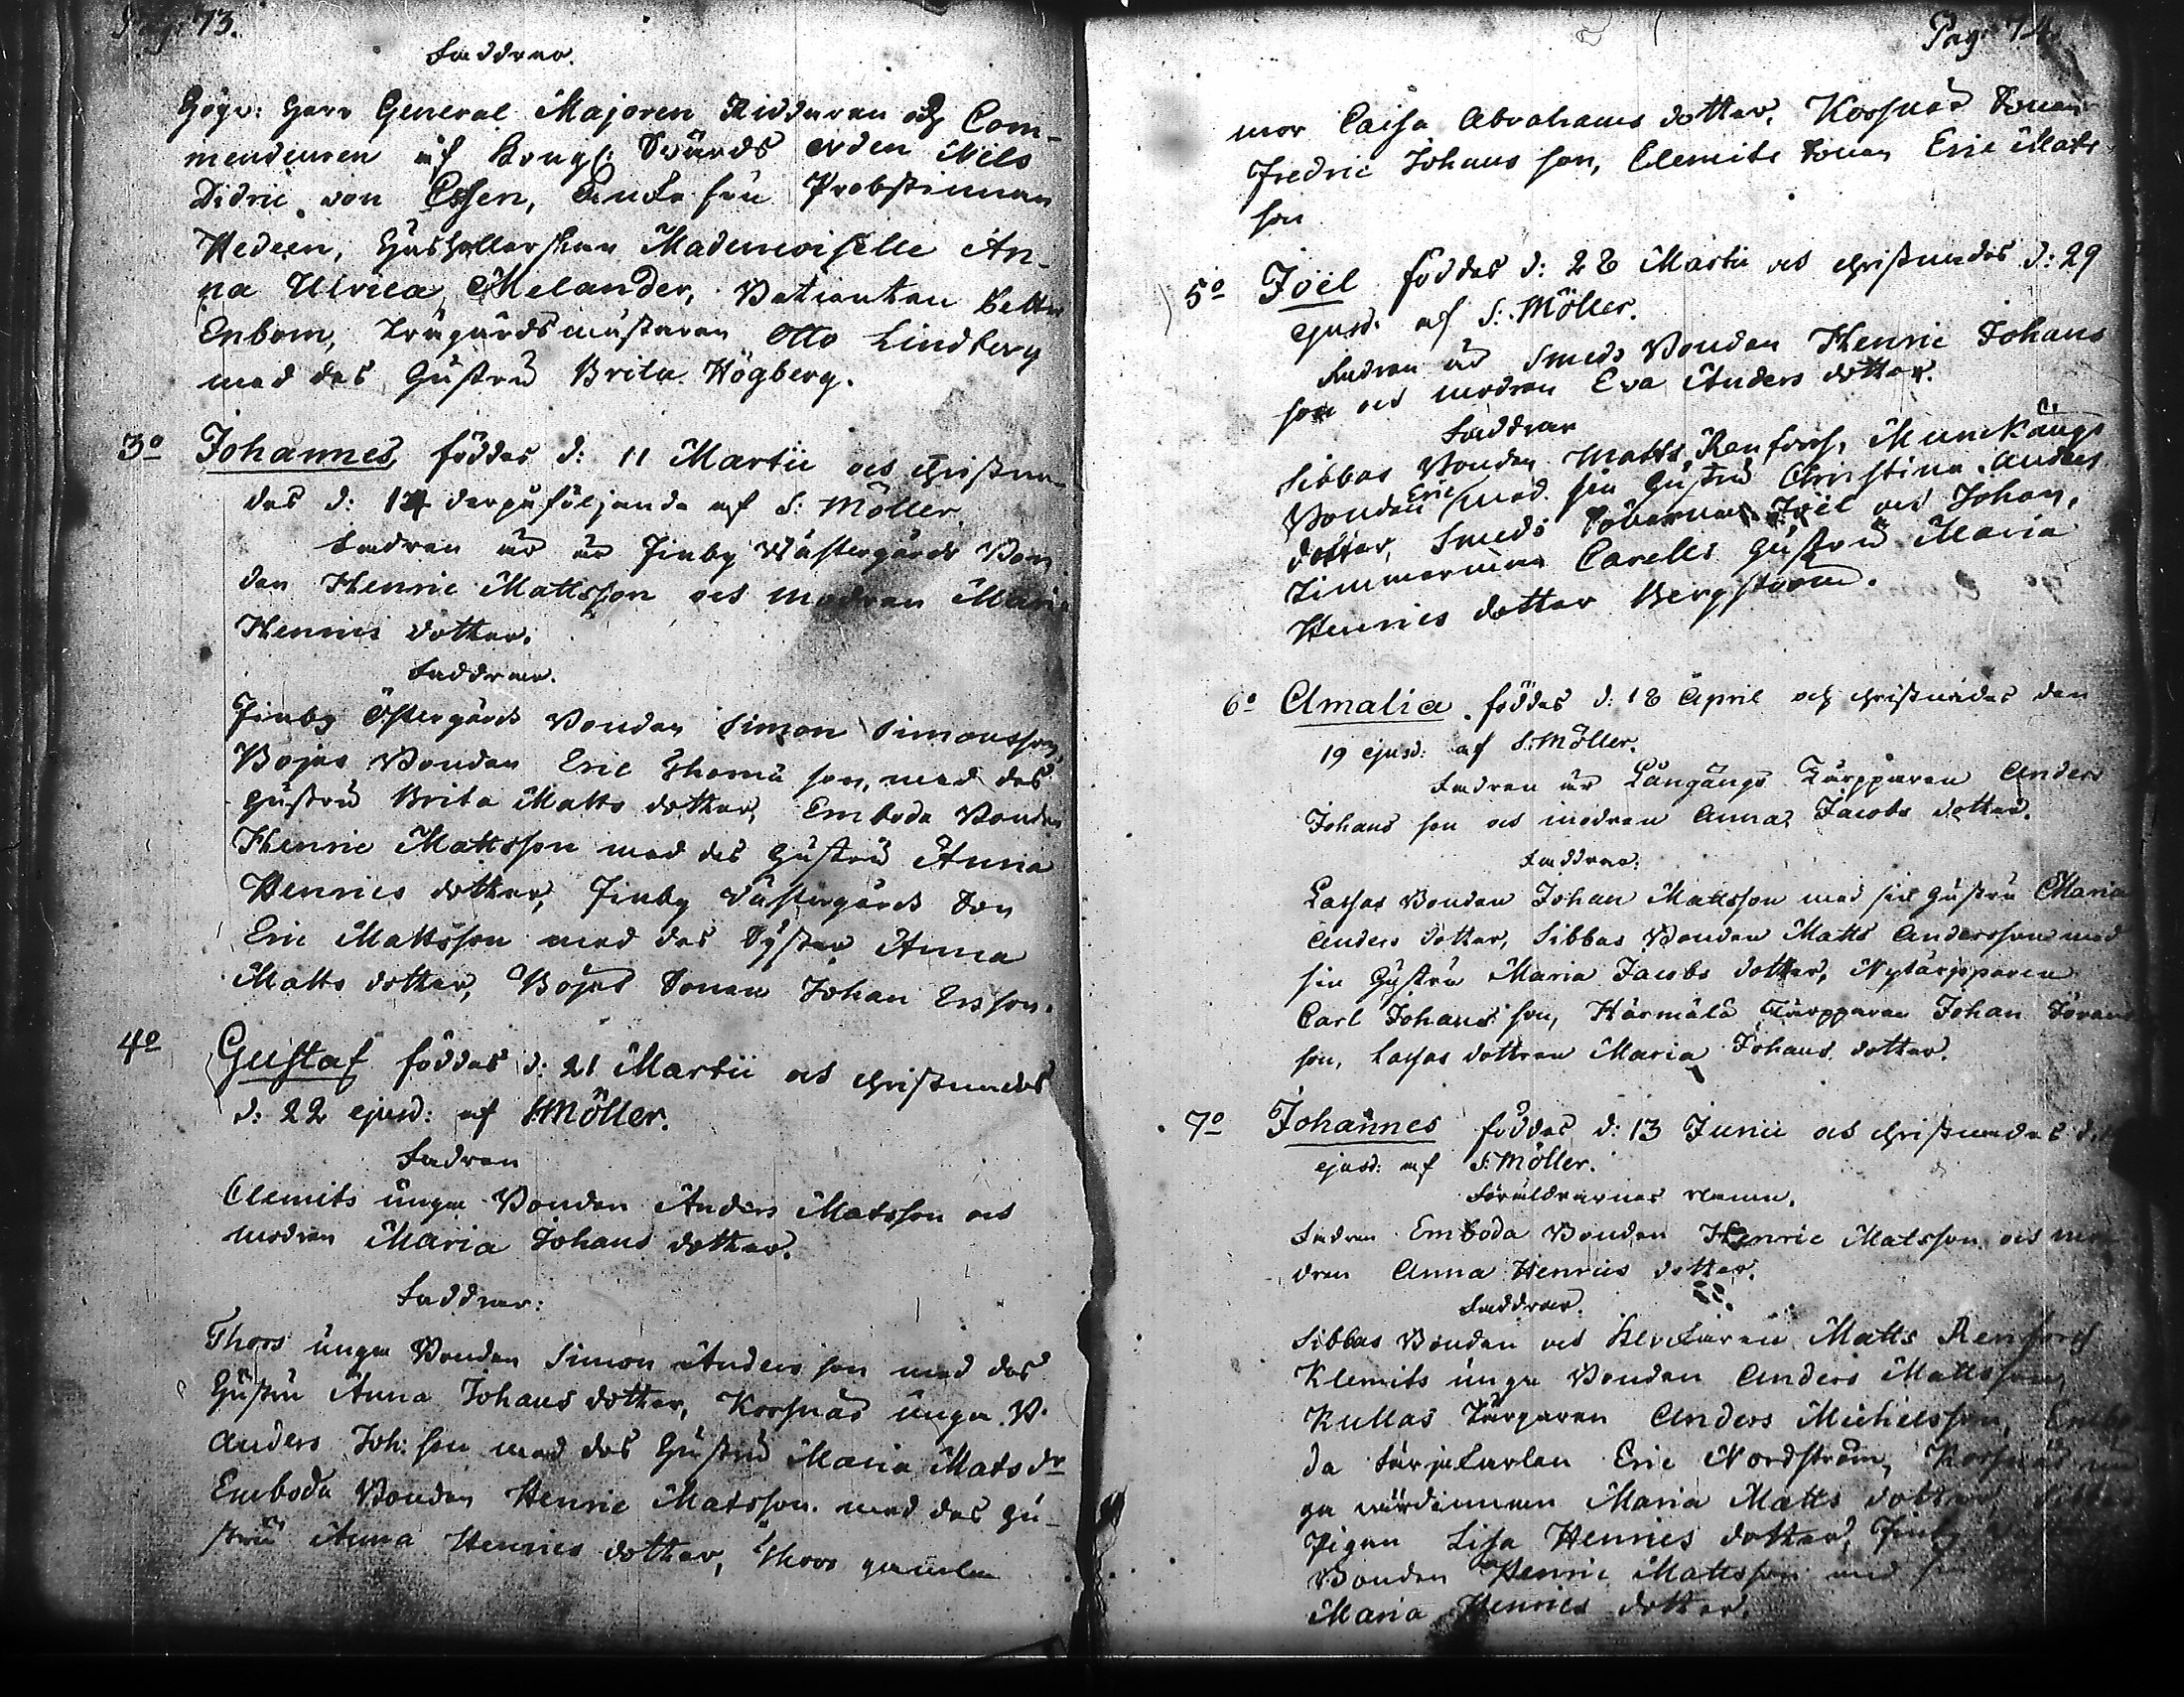 Pag. 73.
Faddrar.
Högv: Herr General Majoren Riddaren och Com-
mendeuren af Kongl: Svärds orden Nils
Didric von Essen, Enke fru Probstinnan
Hedeen, Hushållerskan Mademoiselle An-
na Ulrica Melander,
Enbom, Trägårdsmästaren Otto Lindberg
med des Hustru Brita Högberg.
3o Johannes, föddes d: 11 Martii och christna-
des d: 14 derpåföljande af S: Möller.
Fadren är är Finby Wästergårds Bon
den Henric Mattsson och modren Maria
Henrics dotter.
Faddrar.
Finby Östergårds Bonden Simon Simonsson,
Bojas Bonden Eric Thomæ son, med des
hustru Brita Matts dotter, Emboda Bonden
Henric Mattsson med des hustru Anna
Henrics dotter, Finby Västergårds Son
Eric Mattsson med des Syster Anna
Matts dotter, Bojas Sonen Johan Ersson.
4o Gustaf föddes d: 21 Martii och christnades
d: 22 ejusd: af S:Möller.
Fadren
Clemits unga Bonden Anders Matsson och
modren Maria Johans dotter.
Faddrar:
Thors unga Bonden Simon Anders son med des
Hustru Anna Johans dotter, Korsnäs unga B.
Anders Joh: son med des Hustru Maria Mats dr
Emboda Bonden Henric Matsson med des hu-
stru Anna Henrics dotter, Thors gamla
Pag. 74
mor Caisa Abrahams dotter, Korsnäs Sonen
Fredric Johans son, Clemits Sonen Eric Mats
son
5o Joël föddes d: 28 Martii och christnades d: 29
ejusd: af S: Möller.
Fadren är Smeds Bonden Henric Johans
son och modren Eva Anders dotter.
Faddrar
Sibbas Bonden Matts Renfors, Munkängs
Bonden Eric med sin hustru Christina Anders
dotter, Smeds Joël och Johan,
Timmerman Carells hustru Maria
Henrics dotter Bergström.
6o Amalia föddes d: 18 April och christnades den
19 ejusd: af S:Möller.
Fadren är Långängs Torpparen Anders
Johans son och modren Anna Jacobs dotter.
Faddrar:
Lassas Bonden Johan Mattsson med sin hustru Maria
Anders dotter, Sibbas Bonden Matts Andersson med
sin hustru Maria Jacobs dotter, Nytorpparen
Carl Johans son, Härmälä Torpparen Johan Görans
son, Lassas dottren Maria Johans dotter.
7o Johannes föddes d: 13 Junii och christnades d.
ejusd: af S:Möller.
Föräldrarnas namn.
Fadren Emboda Bonden Henric Matsson och mo-
dren Anna Henrics dotter.
Faddrar.
Sibbas Bonden och Klockaren Matts Renfors
Klemits unga Bonden Anders Mattsson,
Kullas Torparen Anders Michelsson, Embo
da Färjekarlen Eric Nordström, Korsnäs un
ga värdinnan Maria Matts dotter,
Pigan Lisa Henrics dotter, Finby
Bonden Henric Mattsson med
Maria Henrics dotter.